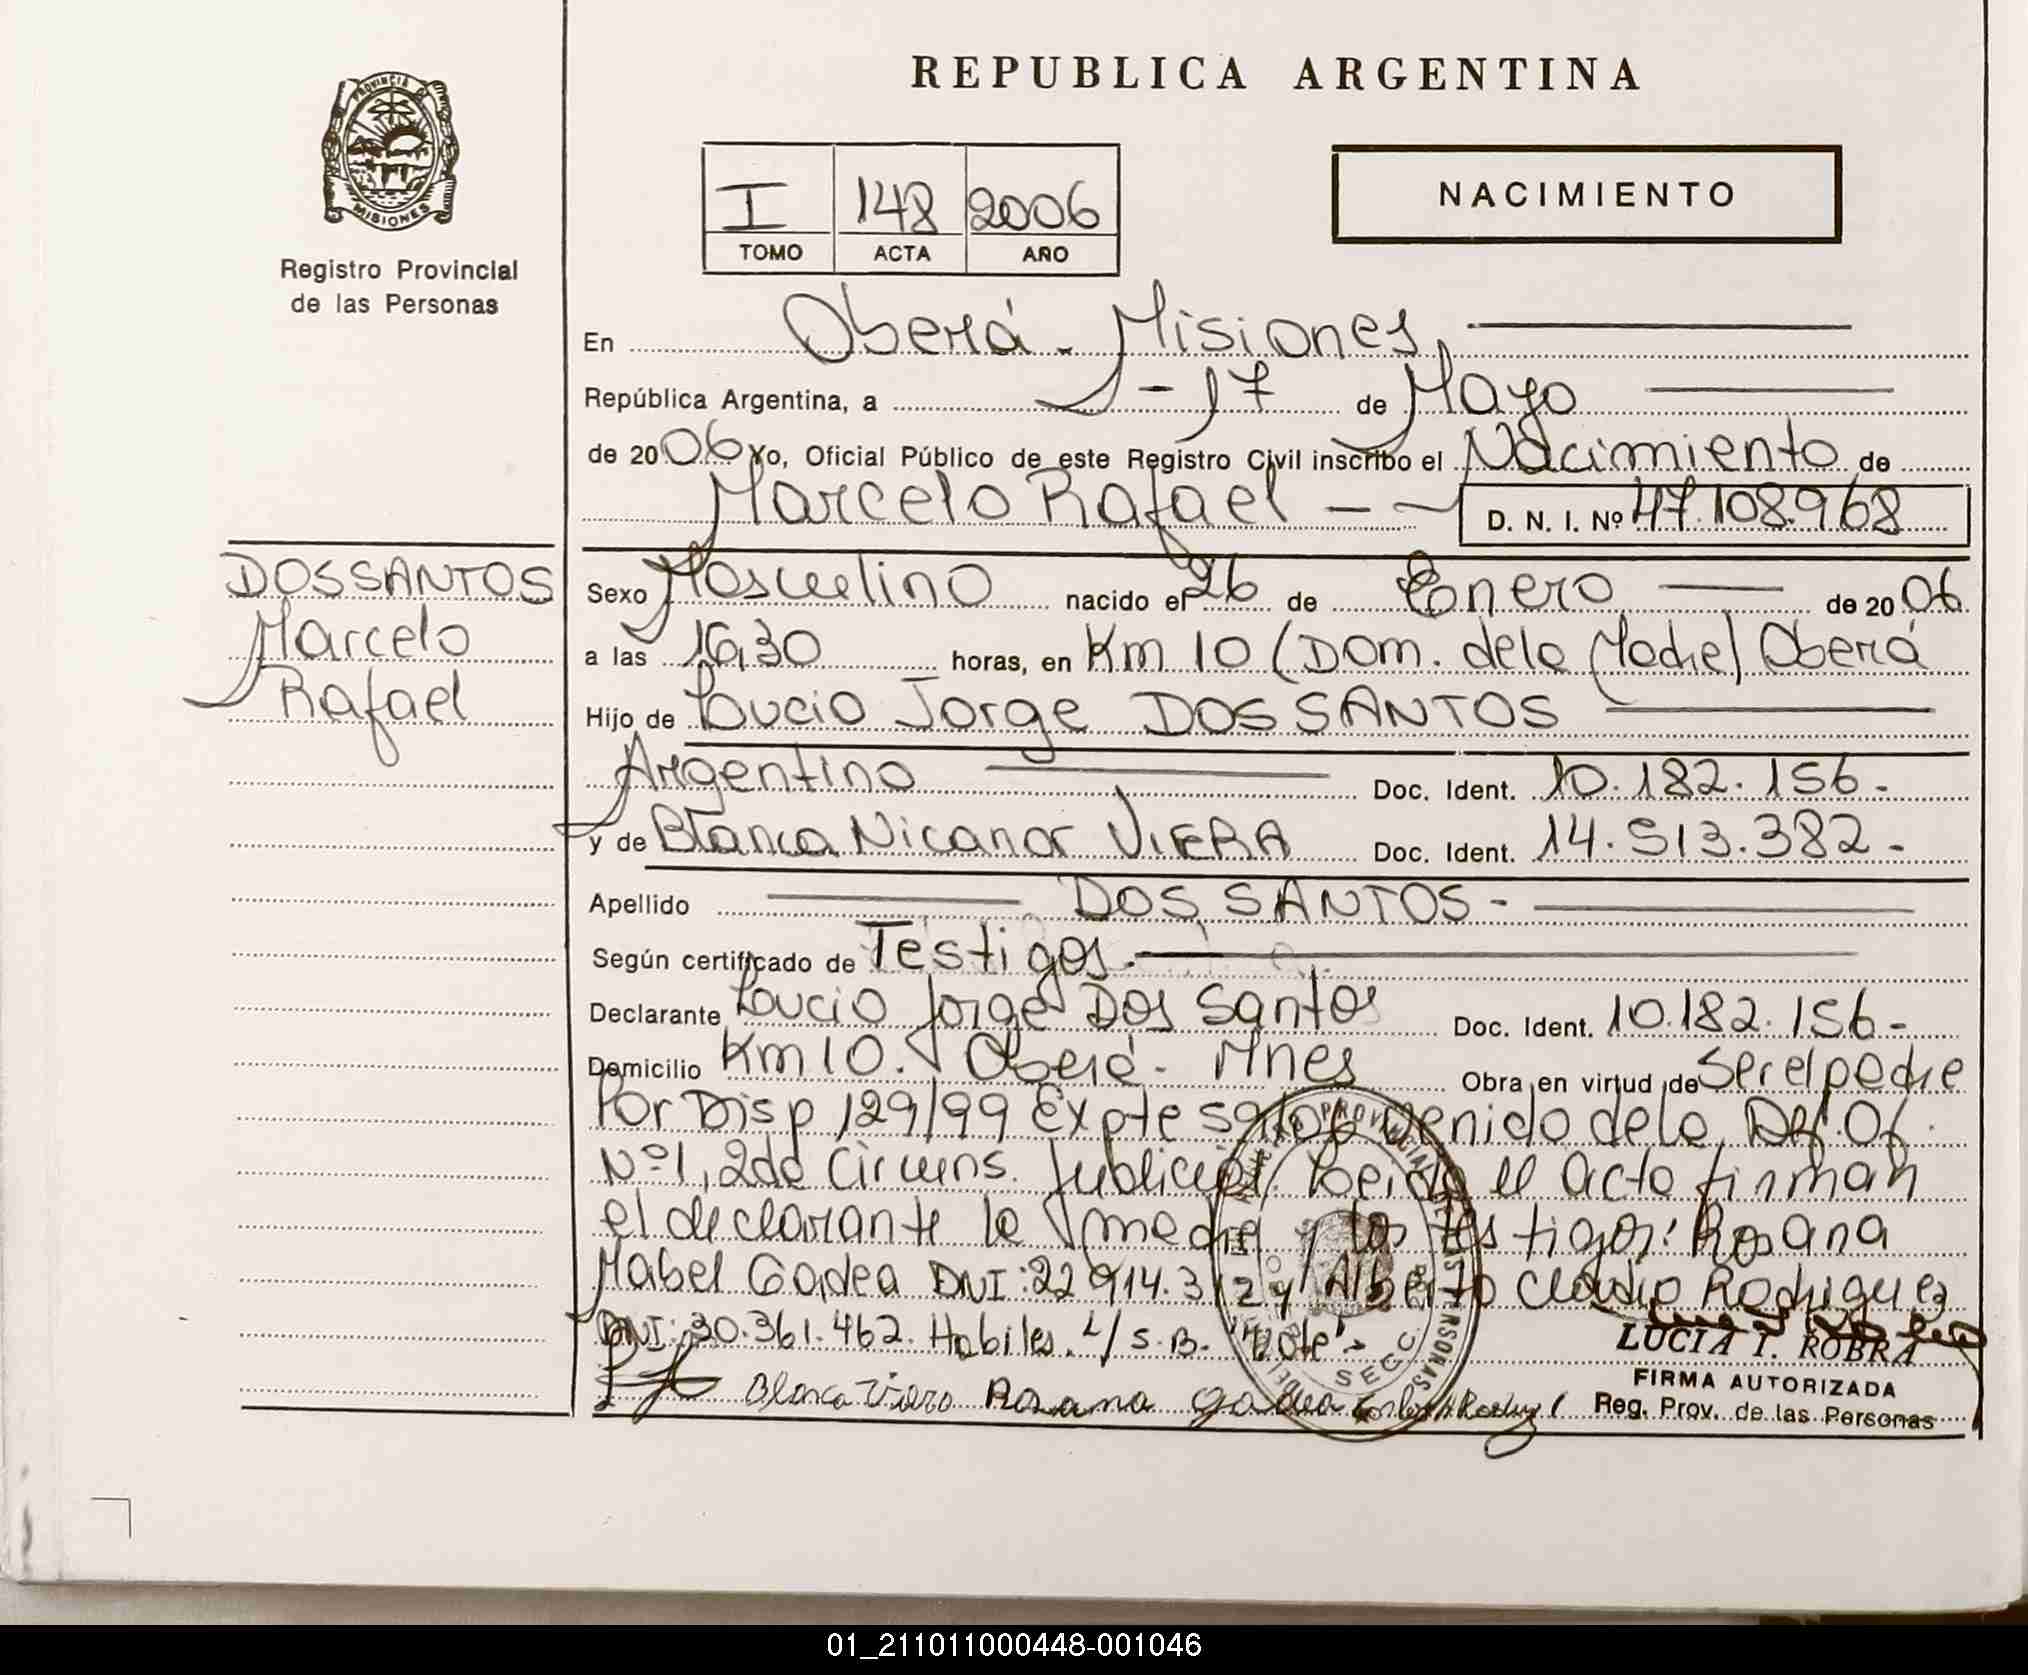 REPUBLICA ARGENTINA
PROVINCIA DE
MISIONES
Registro Provincial
de las Personas
I 148 2006
TOMO ACTA AÑO
NACIMIENTO
En Oberá - Misiones
República Argentina, a - 17 de Mayo
de 2006 Yo, Oficial Público de este Registro Civil inscribo el Nacimiento de
Marcelo Rafael - - D. N. I. Nº 47.108.968
DOS SANTOS
Marcelo
Rafael
Sexo Masculino nacido el 26 de Enero de 2006
a las 16,30 horas, en Km 10 (Dom. de la Madre) Oberá
Hijo de Lucio Jorge DOS SANTOS
Argentino Doc. Ident. 10.182.156-
y de Blanca Nicanor VIERA Doc. Ident. 14.513.382-
Apellido DOS SANTOS-
Según certificado de Testigos.
Declarante Lucio Jorge Dos Santos Doc. Ident. 10.182.156-
Domicilio Km 10. Oberá- Mnes Obra en virtud de Ser el padre
Por Disp 129/99 Expte venido de la Def. Of.
Nº 1, 2da Circuns. Judicial. Leida el acta firman
el declarante la madre y los testigos: Rosana
Mabel Gadea DNI: 22.914.312 y Alberto Claudio Rodriguez
DNI: 30.361.462. Habiles. L/ S.B. "Vale"-
Blanca Viera Rosana Gadea
LUCIA I. ROBRA
FIRMA AUTORIZADA
Reg. Prov. de las Personas
01_211011000448-001046